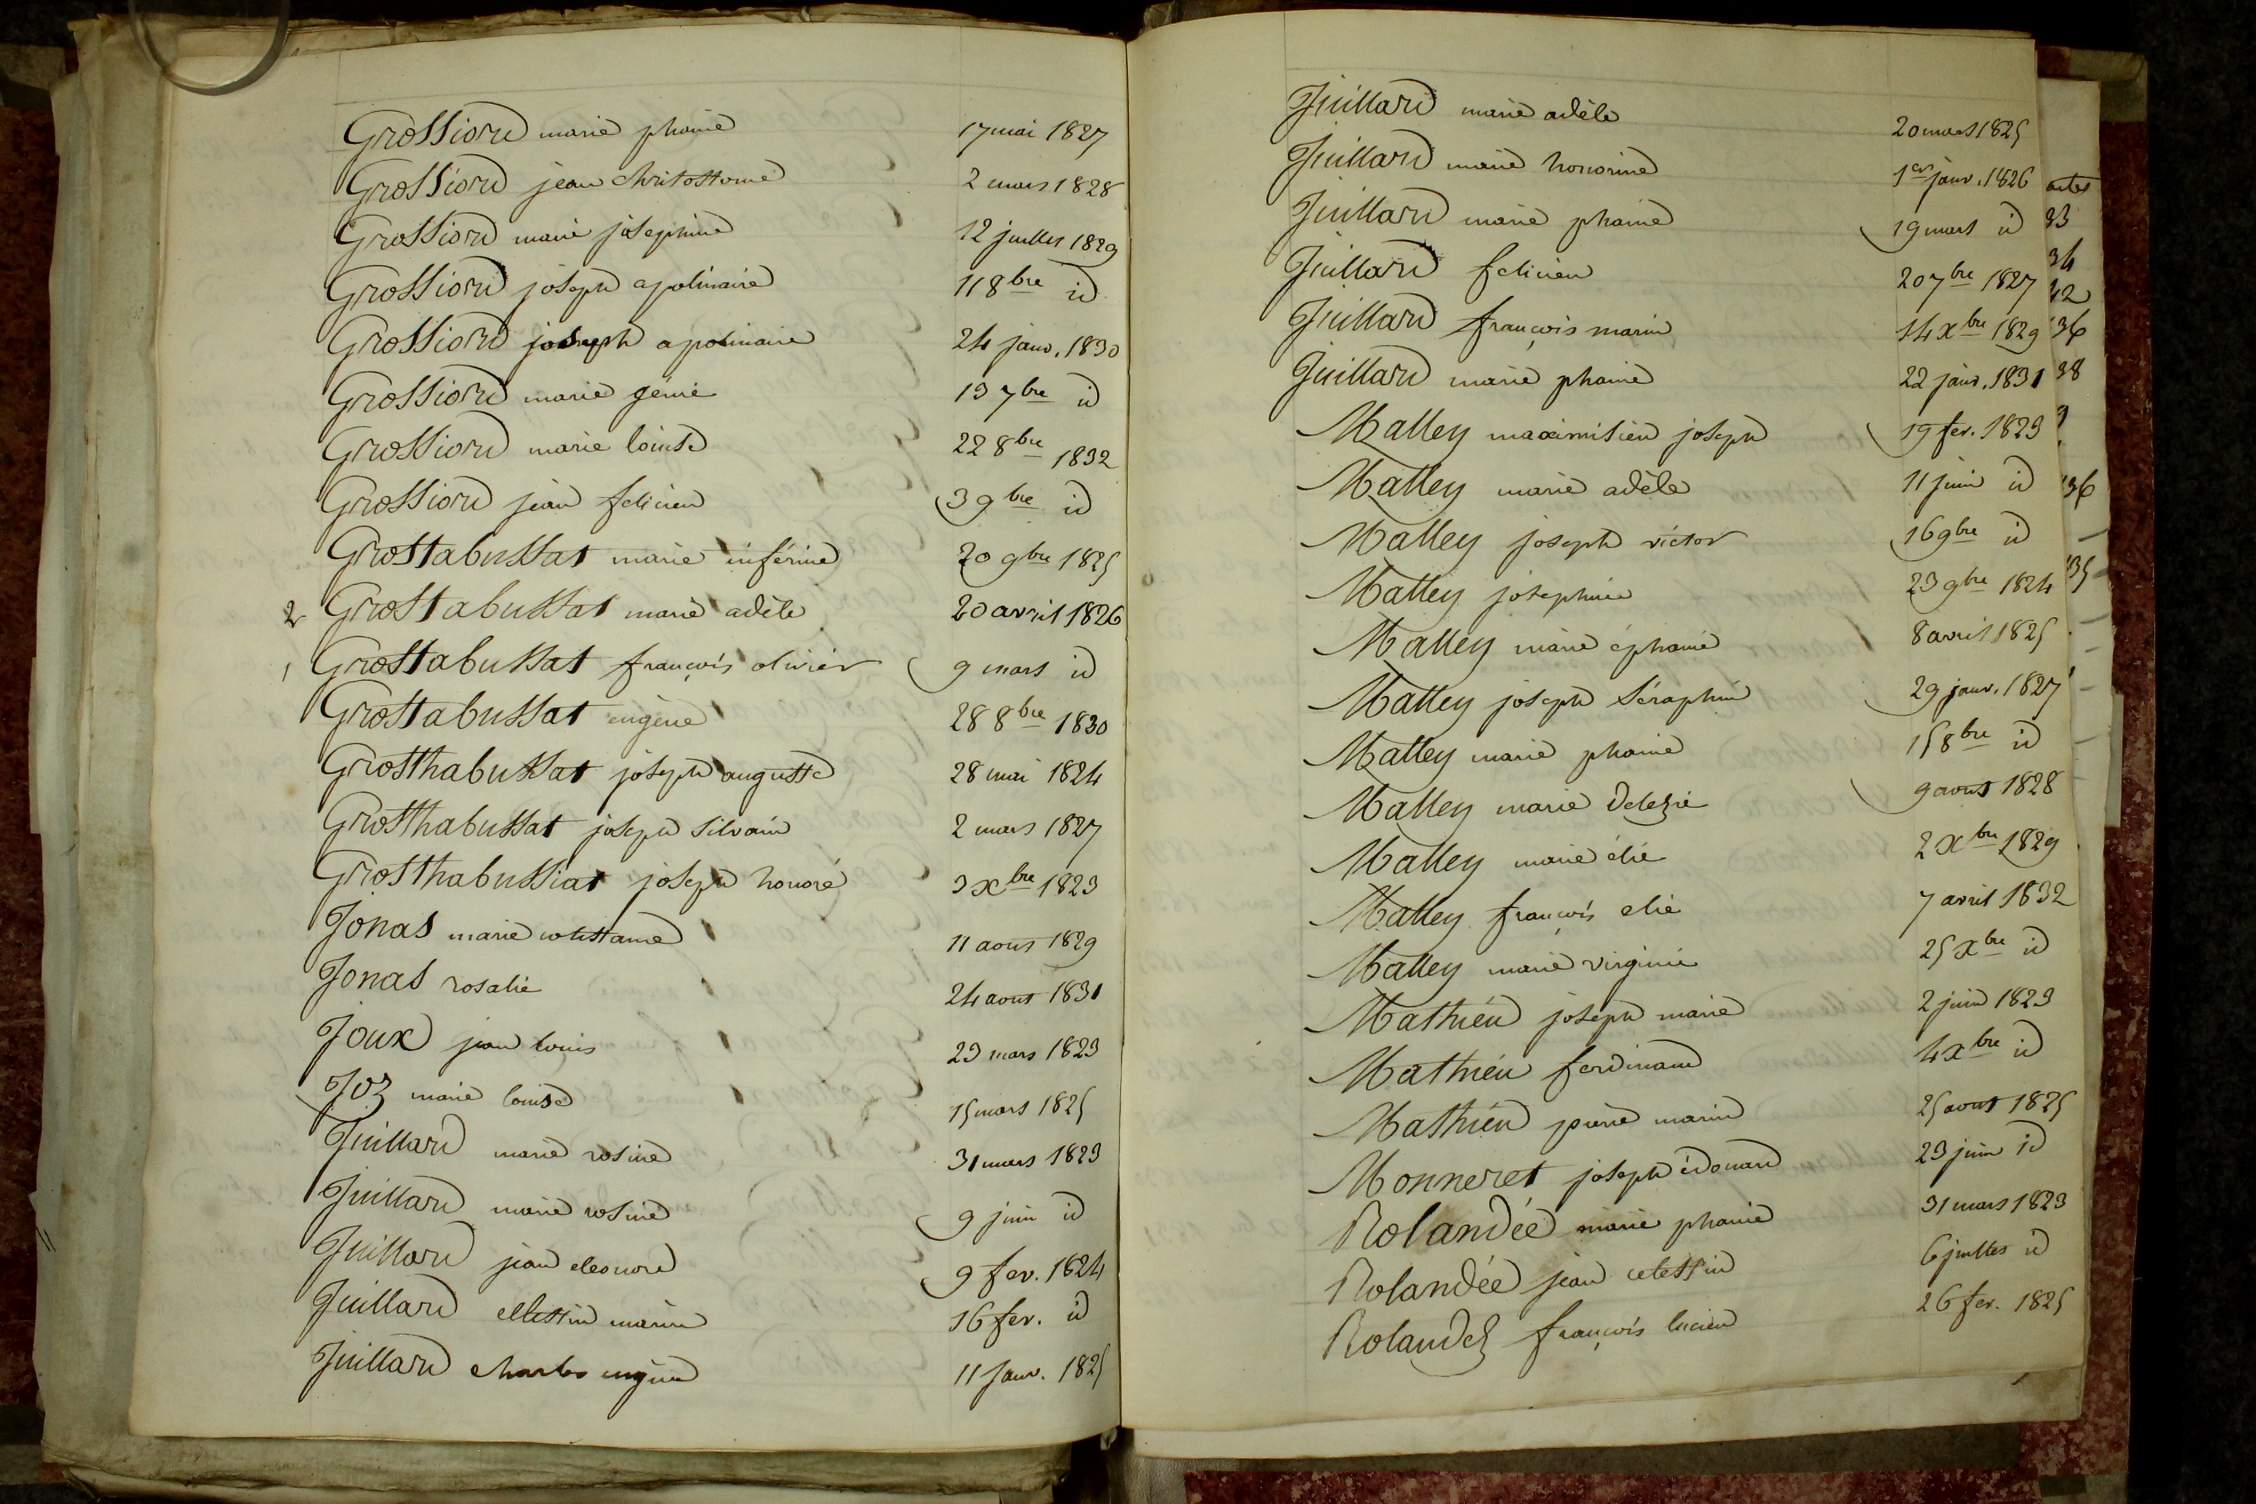 Grossiord marie phanie 17 mai 1827
Grossiord jean christostome 2 mars 1828
Grossiord marie josephine 12 juillet 1829
Grossiord joseph apolinaire 11 8bre id
Grossiord joseph apolinaire 24 janv. 1830
Grossiord marie génie 13 7bre id
Grossiord marie louise 22 8bre 1832
Grossiord jean felicien 3 9bre id
Grostabussat marie inférine 20 9bre 1825
2 Grostabussat marie adèle 20 avril 1826
1 Grostabussat françois olivier 9 mars id
Grostabussat eugène 28 8bre 1830
Grosthabussat joseph auguste 28 mai 1824
Grosthabussat joseph silvain 2 mars 1827
Grosthabussiat joseph honoré 3 xbre 1823
Jonas marie 11 aout 1829
Jonas rosalie 24 aout 1831
Joux jean louis 23 mars 1823
Joz marie louise 15 mars 1825
Juillard marie rosine 31 mars 1823
Juillard marie rosine 9 juin id
Juillard jean eleonore 9 fev. 1824
Juillard marin 16 fev. id
Juillard charles eugène 11 janv. 1825
Juillard marie adèle 20 mars 1825
Juillard marie honorine 1er janv. 1826
Juillard marie phanie 19 mars id
Juillard felicien 20 7bre 1827
Juillard françois marin 14 xbre 1829
Juillard marie phanie 22 janv. 1831
Malley maximilien joseph 19 fev. 1823
Malley marie adèle 11 juin id
Malley joseph victor 16 9bre id
Malley josephine 23 9bre 1824
Malley marie éphanie 8 avril 1825
Malley joseph séraphin 29 janv. 1827
Malley marie phanie 15 8bre id
Malley marie delezie 9 aout 1828
Malley marie élie 2 xbre 1829
Malley françois elie 7 avril 1832
Malley marie virginie 25 xbre id
Mathieu joseph marie 2 juin 1823
Mathieu ferdinand 4 xbre id
Mathieu pierre marin 25 aout 1825
Monneret joseph édouard 23 juin id
Rolandée marie phanie 31 mars 1823
Rolandée jean celestin 6 juillet id
Rolandez françois lucien 26 fev. 1825
33
34
42
36
38
36
35